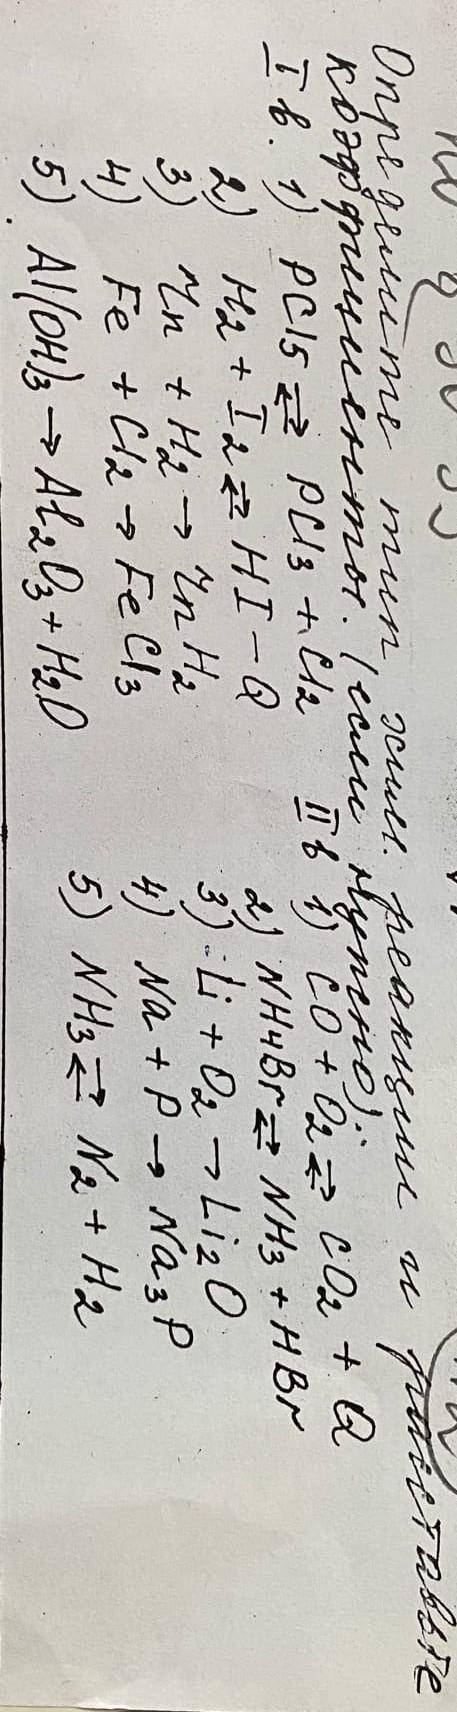 Определите тип хим. реакции и расставьте
коэффициенты. (если нужно):
I в. 1) PCl5 ⇄ PCl3 + Cl2
2) H2 + I2 ⇄ HI - Q
3) Zn + H2 → ZnH2
4) Fe + Cl2 → FeCl3
5) Al(OH)3 → Al2O3 + H2O
II в 1) CO + O2 ⇄ CO2 + Q
2) NH4Br ⇄ NH3 + HBr
3) Li + O2 → Li2O
4) Na + P → Na3P
5) NH3 ⇄ N2 + H2